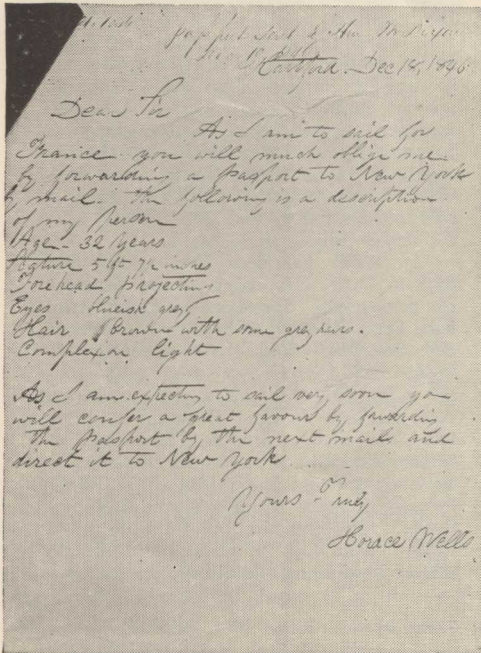 Hartford. Dec 18, 1846
Dear Sir
As I am to sail for
France you will much oblige me
by forwarding a passport to New York
by mail. The following is a description
of my person
Age - 32 years
Stature 5 ft 7½ inches
Forehead projecting
Eyes blueish grey
Hair Brown with some grey hairs.
Complexion light
As I am expecting to sail very soon you
will confer a great favour by forwarding
the passport by the next mail and
direct it to New York
Yours Truly
Horace Wells